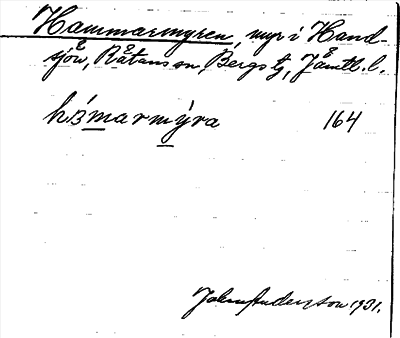 Hammarmyren, myr i Hand-
sjön, Rätans sn, Bergs tg, Jämtl. l.
hámarmýra 164
John Anderson 1931.